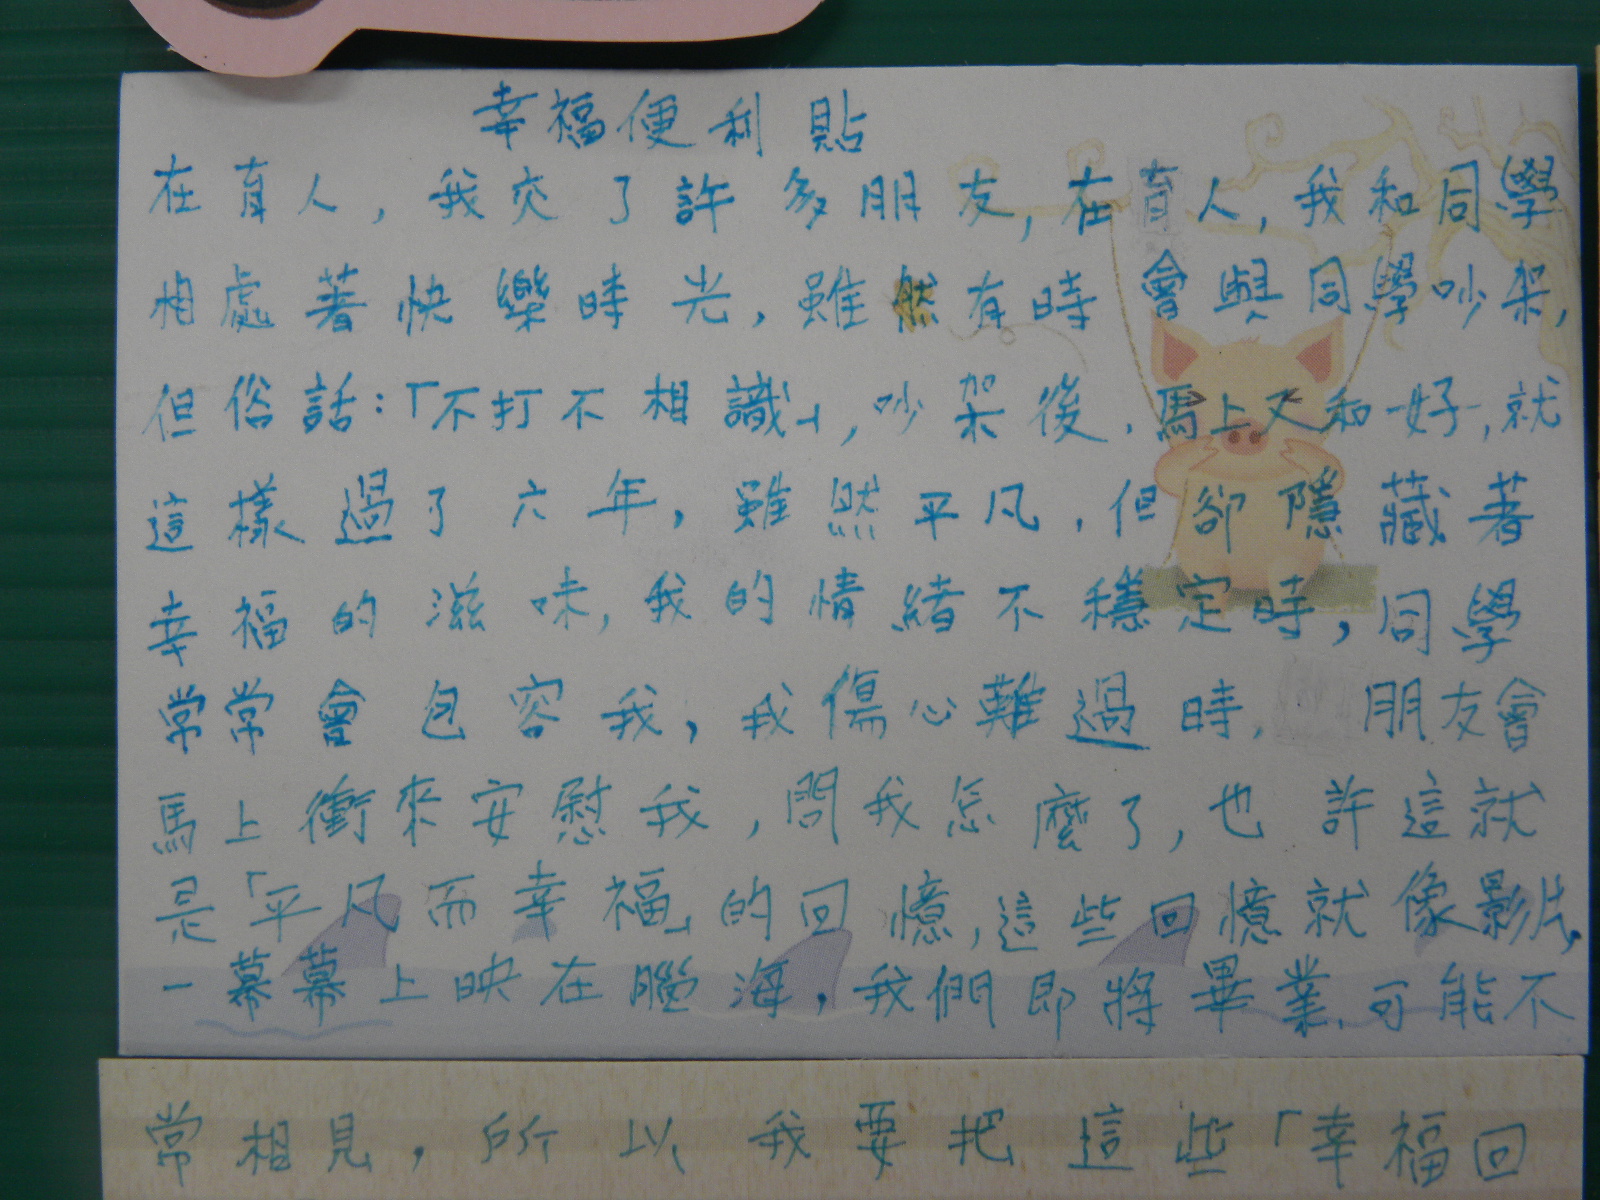 幸福便利貼
在育人，我交了許多朋友，在育人，我和同學
相處著快樂時光，雖然有時會與同學吵架，
但俗話：「不打不相識」，吵架後，馬上又和好，就
這樣過了六年，雖然平凡，但卻隱藏著
幸福的滋味，我的情緒不穩定時，同學
常常會包容我，我傷心難過時，朋友會
馬上衝來安慰我，問我怎麼了，也許這就
是「平凡而幸福」的回憶，這些回憶就像影片，
一幕幕上映在腦海，我們即將畢業，可能不
常相見，所以我要把這些「幸福回